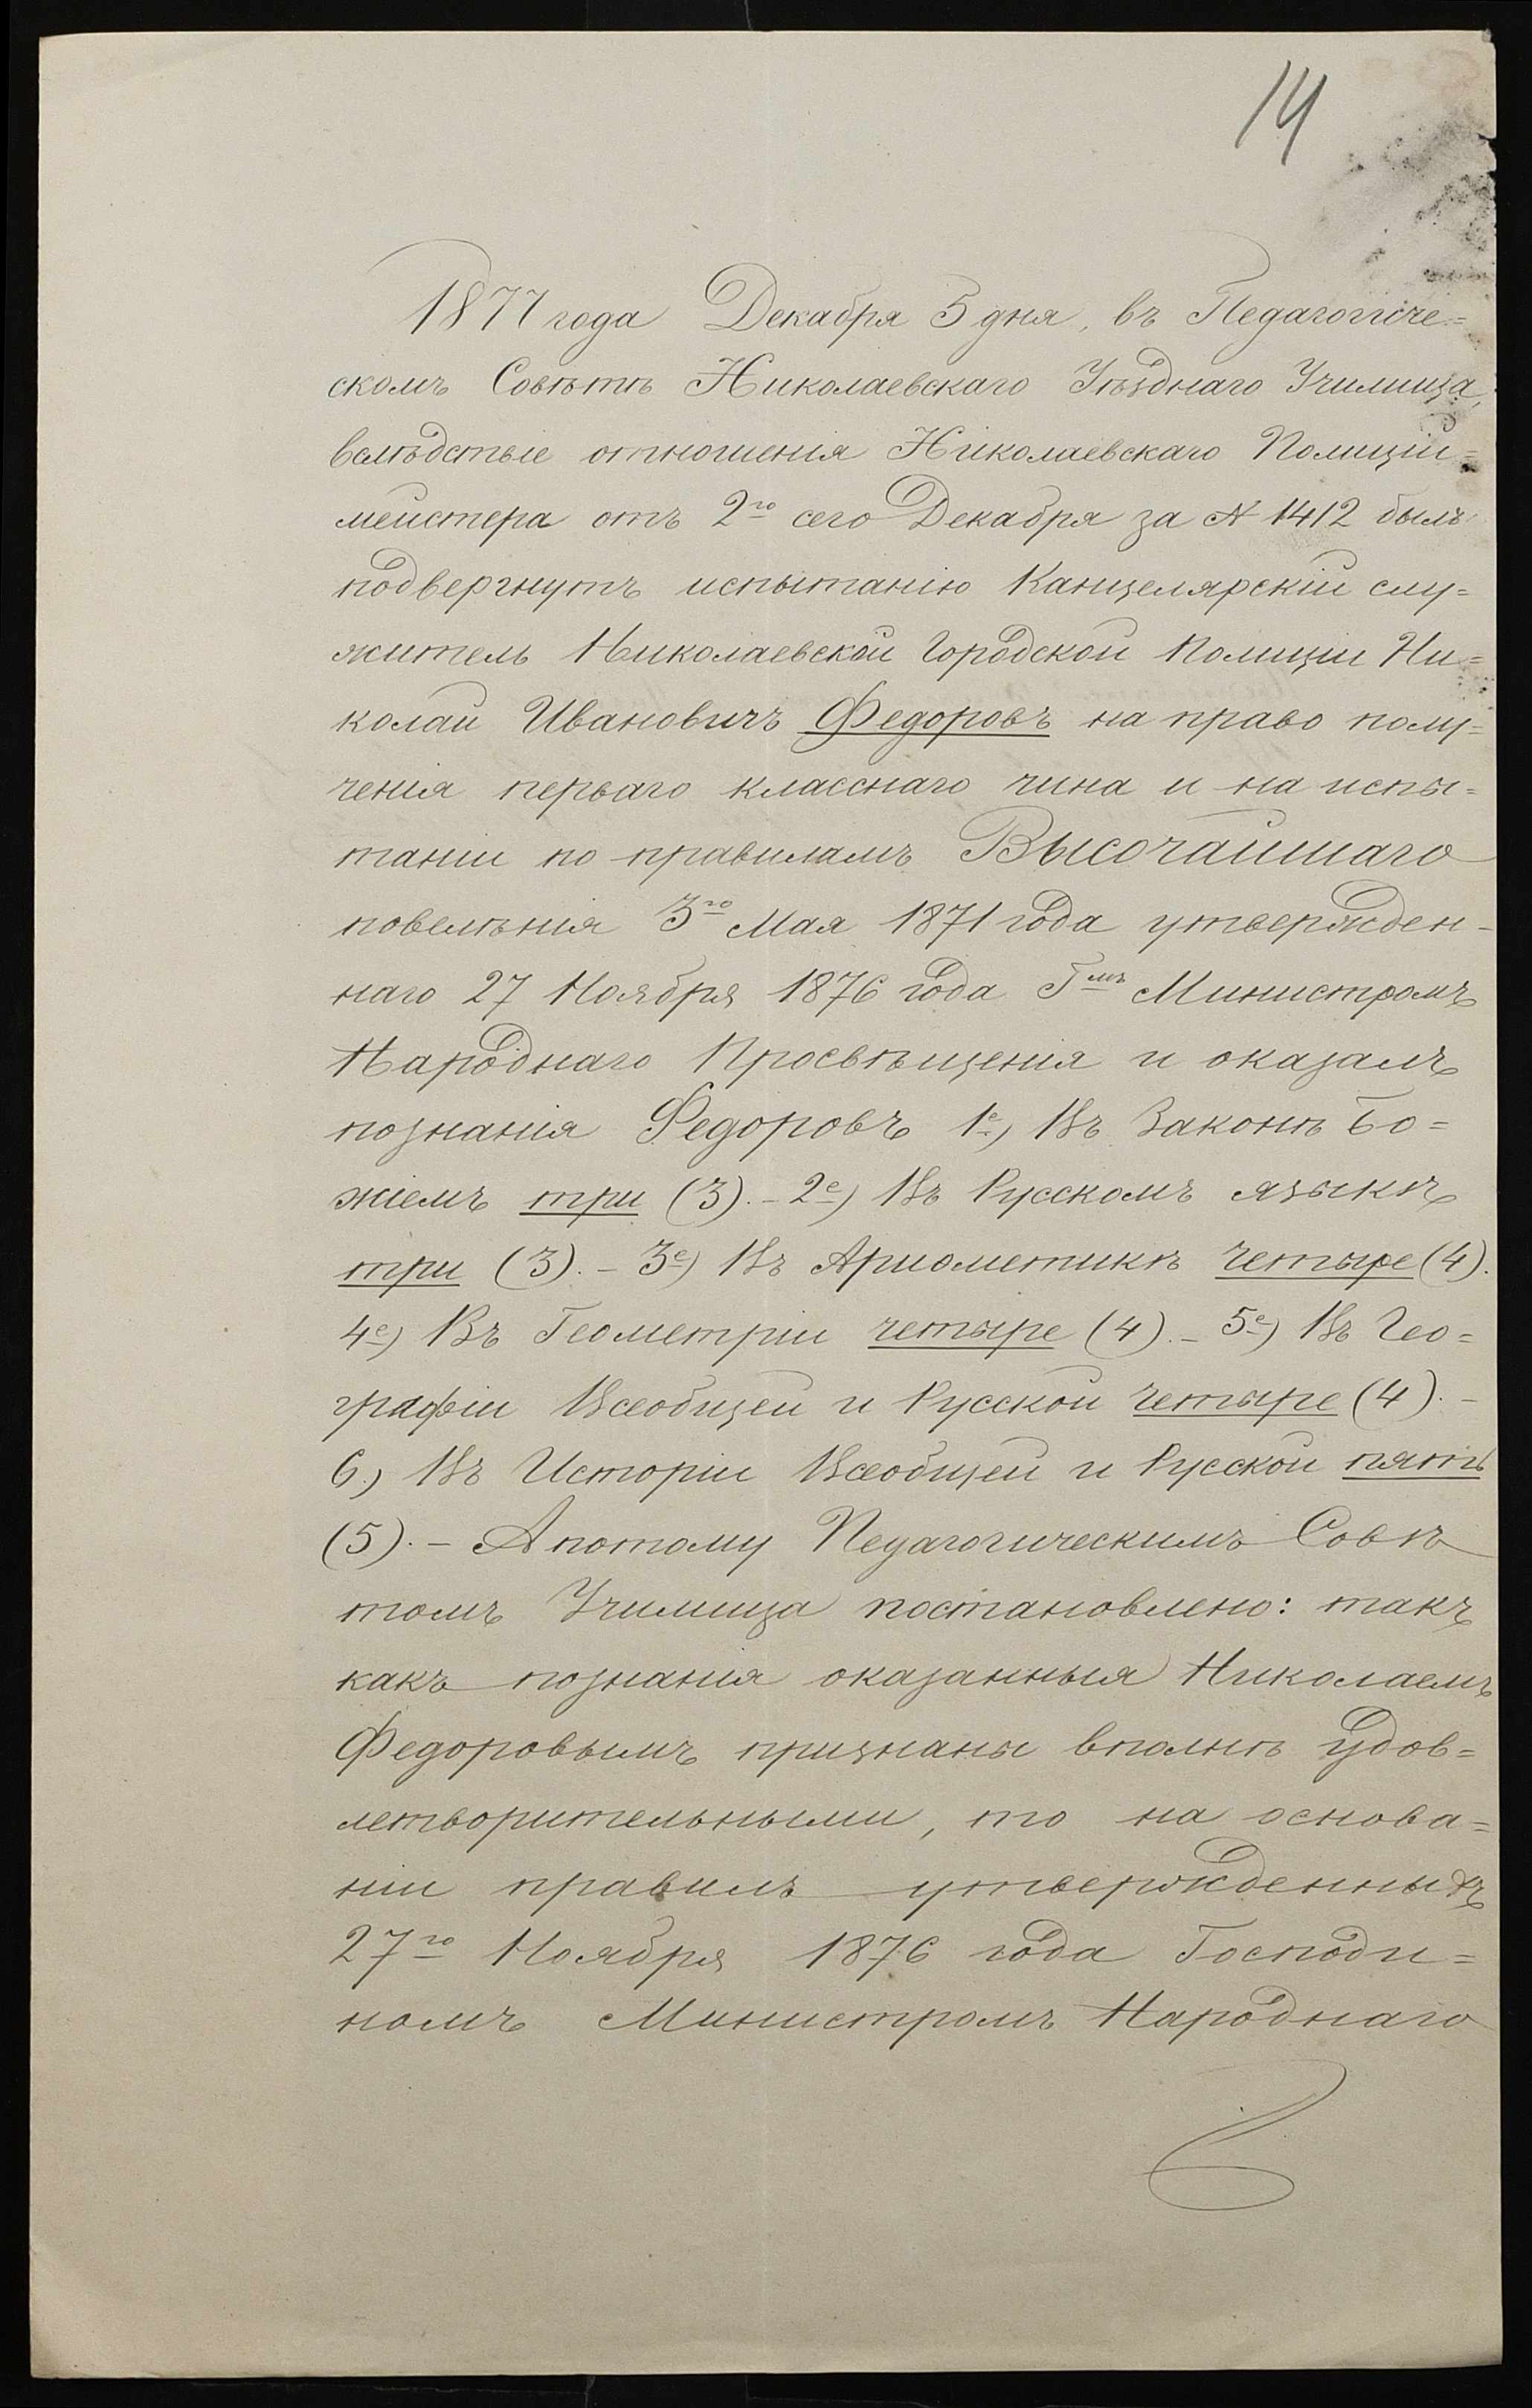 14
1877 года Декабря 5 дня, въ Педагогиче=
скомъ Совѣтѣ Николаевскаго Уѣзднаго Училища,
вслѣдствіе отношенія Николаевскаго Полиціи=
мейстера отъ 2го сего Декабря за № 1412 былъ
подвергнутъ испытанію Канцелярскій слу=
житель Николаевской Городской Полиціи Ни=
колай Ивановичъ Федоровъ на право полу=
ченія перваго класснаго чина и на испы=
таніи по правиламъ Высочайшаго
повелѣнія 3го Мая 1871 года утвержден-
наго 27 Ноября 1876 года Гмъ Министромъ
Народнаго Просвѣщенія и оказалъ
познанія Федоровъ 1е) Въ Законѣ Бо=
жіемъ три (3). - 2е) Въ Русскомъ языкѣ
три (3). - 3е) Въ Ариѳметикѣ четыре (4).
4е) Въ Геометріи четыре (4). - 5е) Въ Гео=
графіи Всеобщей и Русской четыре (4). -
6.) Въ Исторіи Всеобщей и Русской пять
(5). - А потому Педагогическимъ Совѣ
томъ Училища постановлено: такъ
какъ познанія оказанныя Николаемъ
Федоровымъ признаны вполнѣ удов=
летворительными, то на основа=
ніи правилъ утвержденныхъ
27го Ноября 1876 года Господи=
номъ Министромъ Народнаго